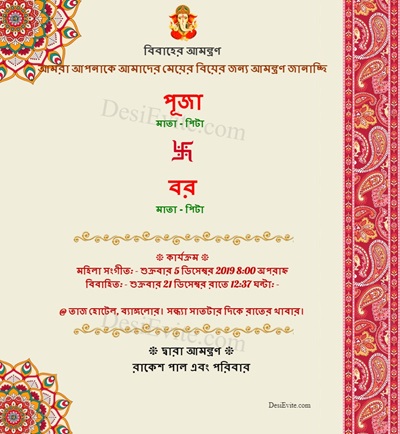 বিবাহের আমন্ত্রণ
আমরা আপনাকে আমাদের মেয়ের বিয়ের জন্য আমন্ত্রণ জানাচ্ছি
পূজা
মাতা - পিটা
বর
মাতা - পিটা
❊ কার্যক্রম ❊
মহিলা সংগীত: - শুক্রবার 5 ডিসেম্বর 2019 8:00 অপরাহ্ন
বিবাহিত: - শুক্রবার 21 ডিসেম্বর রাতে 12:37 ঘন্টা: -
@ তাজ হোটেল, ব্যাঙ্গালোর। সন্ধ্যা সাতটার দিকে রাতের খাবার।
❊ দ্বারা আমন্ত্রণ ❊
রাকেশ পাল এবং পরিবার
DesiEvite.com
DesiEvite.com
DesiEvite.com